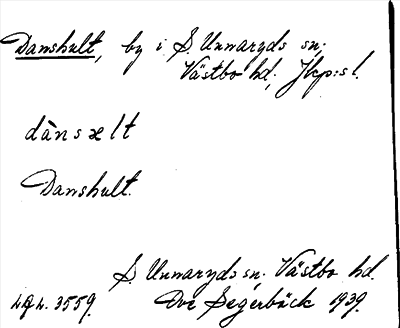 Danshult, by i S. Unnaryds sn;
Västbo hd, Jkp:s l.
dànsælt
Danshult.
S. Unnaryds sn; Västbo hd.
Ove Segerbäck 1939.